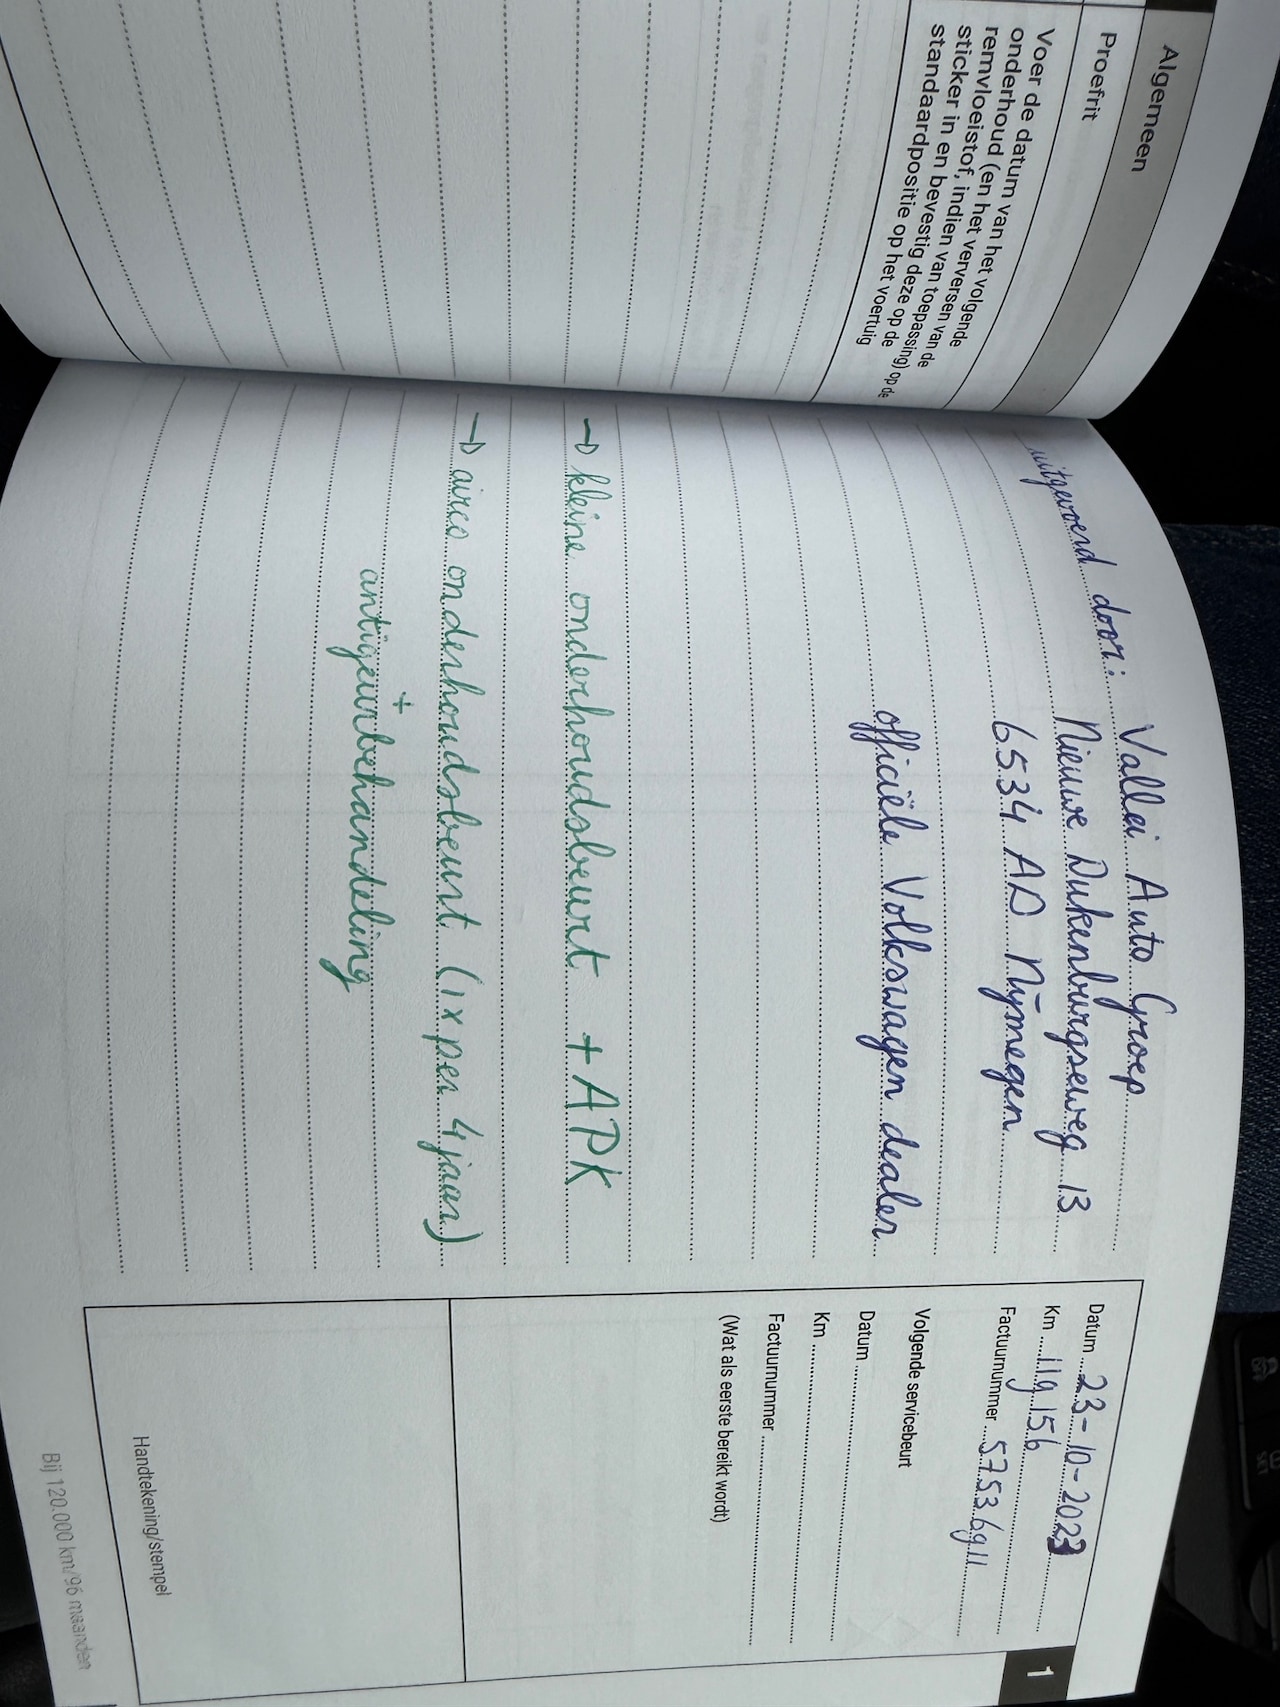 Algemeen
Proefrit
Voer de datum van het volgende
onderhoud (en het verversen van de
remvloeistof, indien van toepassing) op de
sticker in en bevestig deze op de
standaardpositie op het voertuig
uitgevoerd door: Vallei Auto Groep
Nieuwe Dukenburgseweg 13
6534 AD Nijmegen
officiële Volkswagen dealer
→ kleine onderhoudsbeurt + APK
→ airco onderhoudsbeurt (1x per 4 jaar)
+
antigeurbehandeling
1
Datum 23-10-2023
Km 119156
Factuurnummer 57536911
Volgende servicebeurt
Datum
Km
Factuurnummer
(Wat als eerste bereikt wordt)
Handtekening/stempel
Bij 120.000 km/96 maanden